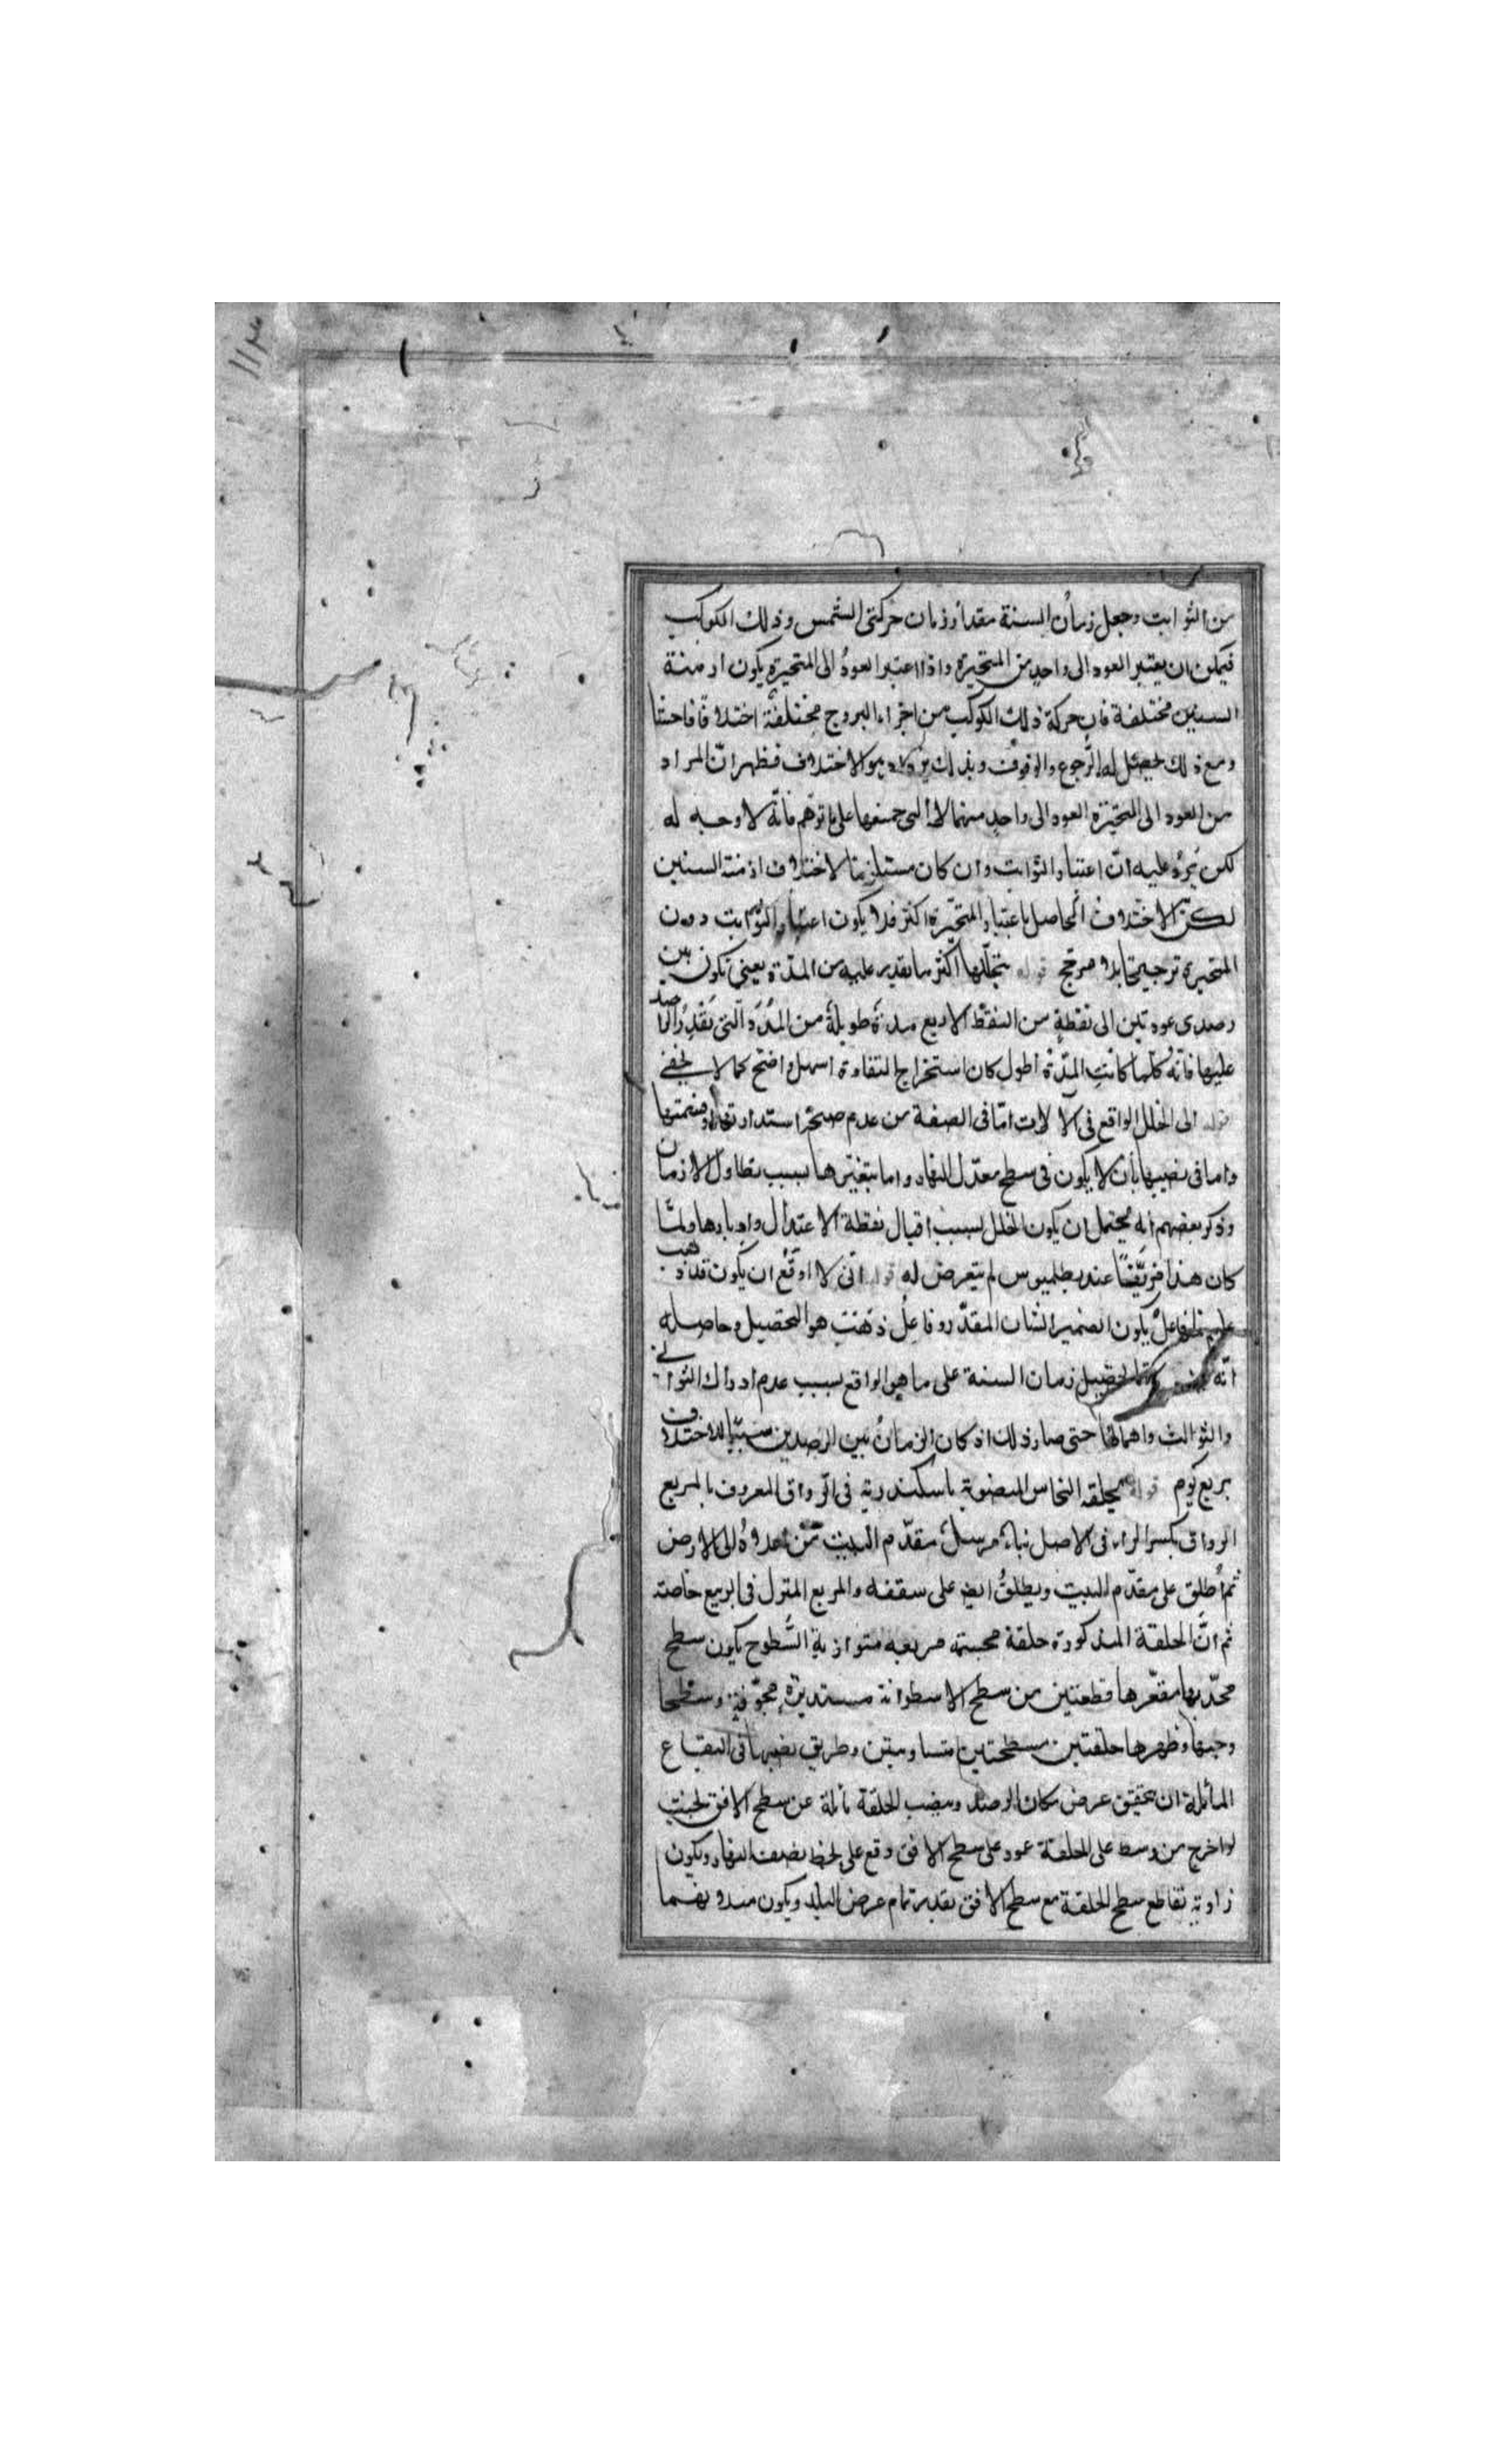 من الثوابت وجعل زمان السنة مقدار زمان حركتى الشمس وذلك الكوكب
فيمكن ان يعتبر العود الى واحد من المتحيرة واذا اعتبر العود الى المتحيرة يكون ازمنة
السنين مختلفة فان حركة ذلك الكوكب من اجزاء البروج مختلفة اختلافا فاحشا
ومع ذلك يحصل له الرجوع والوقوف وبذلك يزداد الاختلاف فظهر ان المراد
من العود الى المتحيرة العود الى واحد منها لا الى جميعها على ما توهم فانه لا وجه له
لكن يرد عليه ان اعتبار الثوابت وان كان مستلزما لاختلاف ازمنة السنين
لكن الاختلاف الحاصل باعتبار المتحيرة اكثر فلا يكون اعتبار الثوابت دون
المتحيرة ترجيحا بلا مرجح قوله اكثر ما يقدر عليه من المدة يعنى تكون بين
رصدى عودتين الى نقطة من النقط الاربع مدة طويلة من المدد التى يقدر الراصد
عليها فانه كلما كانت المدة اطول كان استخراج التفاوت اسهل واضح كما لا يخفى
قوله الى الخلل الواقع فى الالات اما فى الصفة من عدم صحة استدارتها او قسمتها
واما فى نصبها بان لا يكون فى سطح معدل النهار واما بتغيرها بسبب تطاول الازمان
وذكر بعضهم انه يحتمل ان يكون الخلل بسبب اقبال نقطة الاعتدال وادبارها ولما
كان هذا مزيفا عند بطلميوس لم يتعرض له قوله انى لا اوقع ان يكون قد ذهب
يكون الضمير الشان المقدر وفاعل ذهبت هو التحصيل وحاصله
انه زمان السنة على ما هو الواقع بسبب عدم ادراك الثوانى
والثوالث واهمالها حتى صار ذلك اذ كان الزمان بين الرصدين سببا للاختلاف
بربع يوم قوله بحلقة النحاس المنصوبة باسكندرية فى الرواق المعروف بالمربع
الرواق بكسر الراء فى الاصل بناء مرسل مقدم البيت من اعلاه الى الارض
ثم اطلق على مقدم البيت ويطلق ايضا على سقفه والمربع المنزل فى الربيع خاصة
ثم ان الحلقة المذكورة حلقة مجسمة مربعة متوازية السطوح يكون سطح
محدبها ومقعرها قطعتين من سطح الاسطوانة مستديرة مجوفة وسطحا
وجهها وظهرها حلقتين مسطحتين متساويتين وطريق نصبها فى البقاع
المائلة ان يحقق عرض مكان الرصد وينصب الحلقة مائلة عن سطح الافق بحيث
لو اخرج من وسط على الحلقة عمود على سطح الافق وقع على خط نصف النهار ويكون
زاوية تقاطع سطح الحلقة مع سطح الافق بقدر تمام عرض البلد ويكون